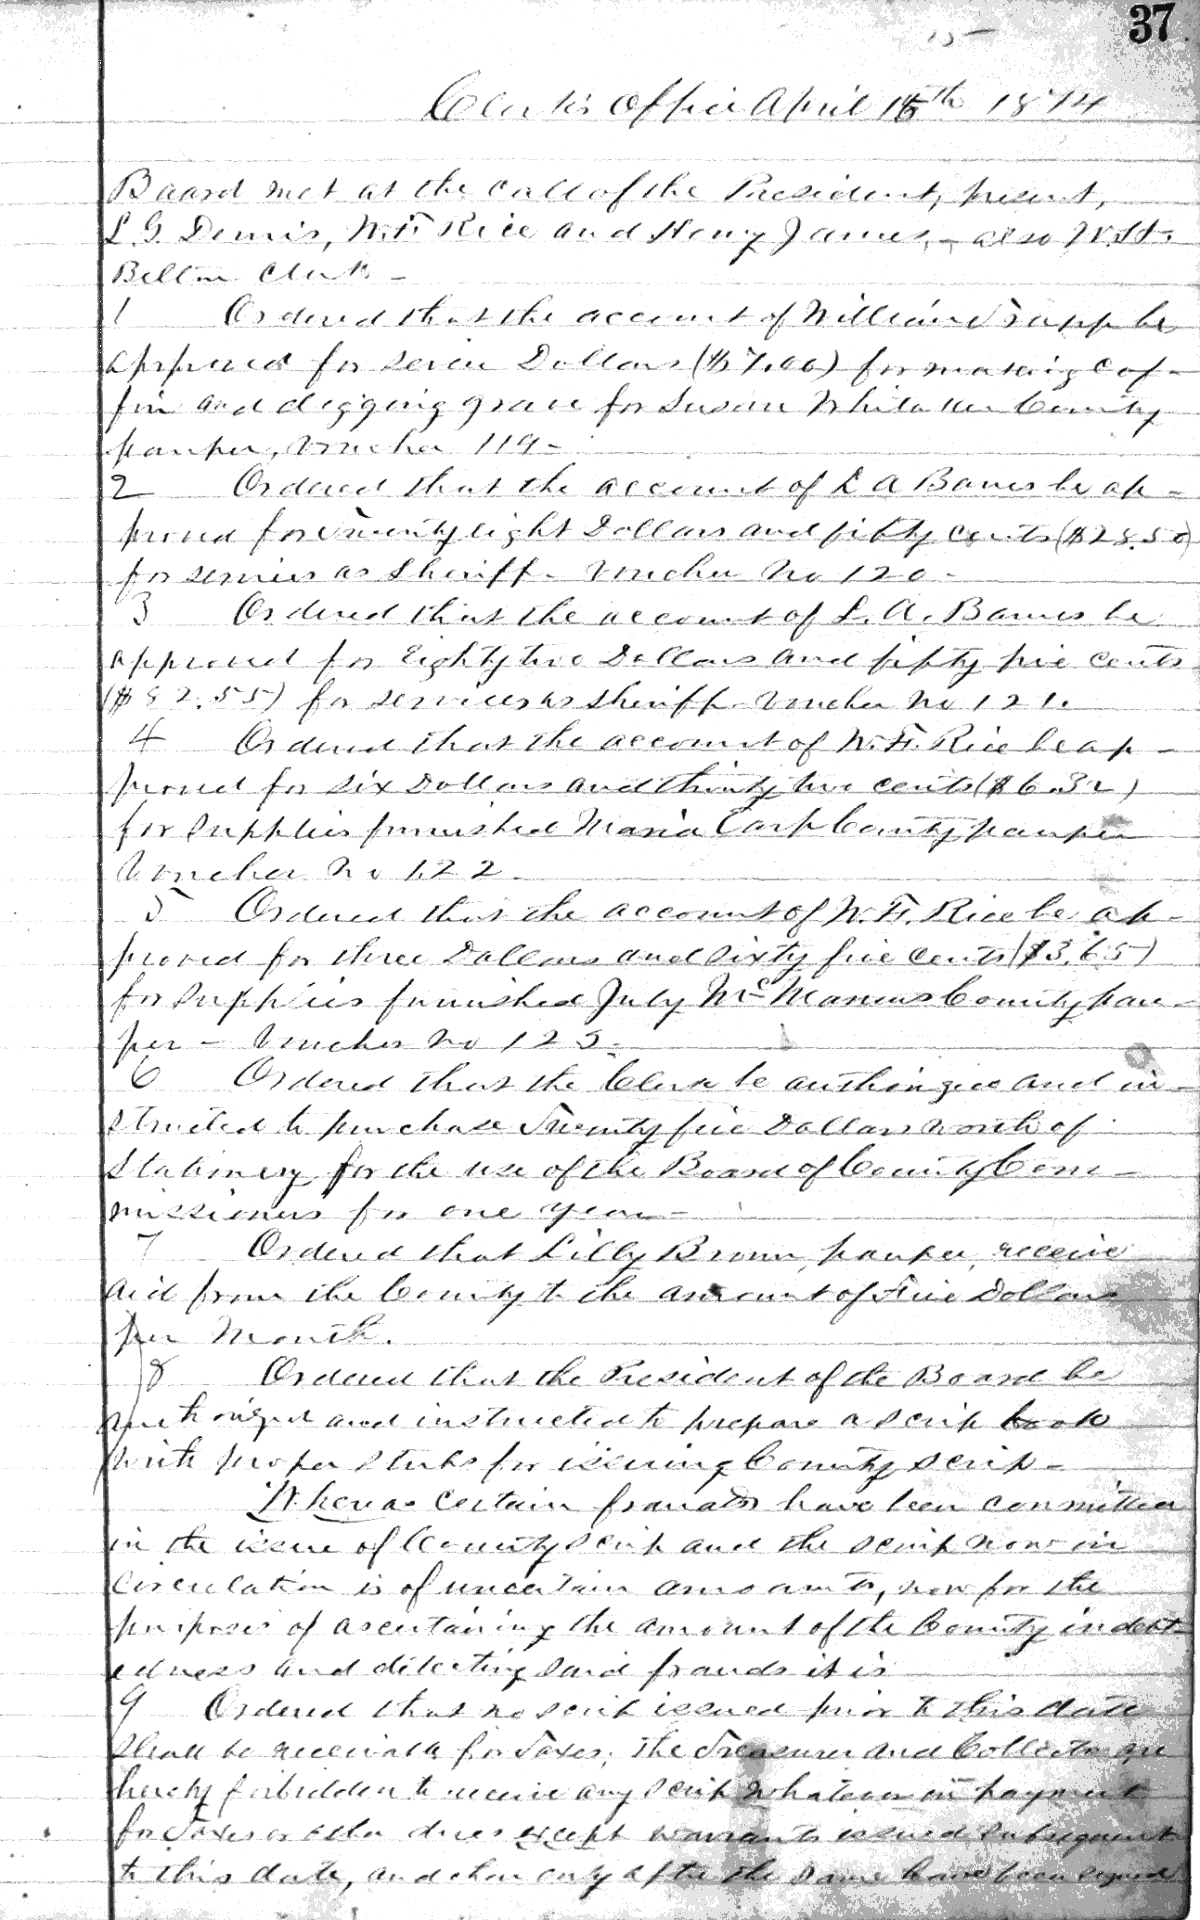 37
Clerk's Office April 15th 1874
Board met at the call of the President, present,
L. G. Dennis, W. F. Rice and Henry James, - also W. H.
Belton Clerk -
1 Ordered that the account of William Trapp be
approved for seven Dollars ($7.00) for making cof-
fin and digging grave for Susan Whitaker County
pauper, Voucher 119 -
2 Ordered that the account of L A Barnes be ap -
proved for Twenty eight Dollars and fifty cents ($28.50)
for services as Sheriff - Voucher No 120 -
3 Ordered that the account of L. A. Barnes be
approved for Eighty two Dollars and fifty five cents
($82.55) for services as Sheriff - Voucher No 121.
4 Ordered that the account of W. F. Rice be ap -
proved for six Dollars and thirty two cents ($6.32)
for supplies furnished Maria County pauper
Voucher No 122 -
5 Ordered that the account of W. F. Rice be ap -
proved for three Dollars and sixty five cents ($3.65)
for supplies furnished July McManus County pau -
per - Voucher No 123 -
6 Ordered that the Clerk be authorized and in -
structed to purchase Twenty five Dollars worth of
Stationery for the use of the Board of County Com -
missioners for one year -
7 Ordered that Lilly Brown, pauper, receive
aid from the County to the amount of Five Dollars
per Month.
8 Ordered that the President of the Board be
authorized and instructed to prepare a scrip book
with proper stubs for issuing County scrip -
Whereas certain frauds have been committed
in the issue of County scrip and the scrip now in
circulation is of uncertain amount, now for the
purposes of ascertaining the amount of the County indebt-
edness and detecting said frauds it is
9 Ordered that no scrip issued prior to this date
shall be receivable for Taxes; the Treasurer and Collector are
hereby forbidden to receive any scrip whatever in payment
for Taxes or other dues except warrants issued subsequent
to this date, and then only after the same have been signed